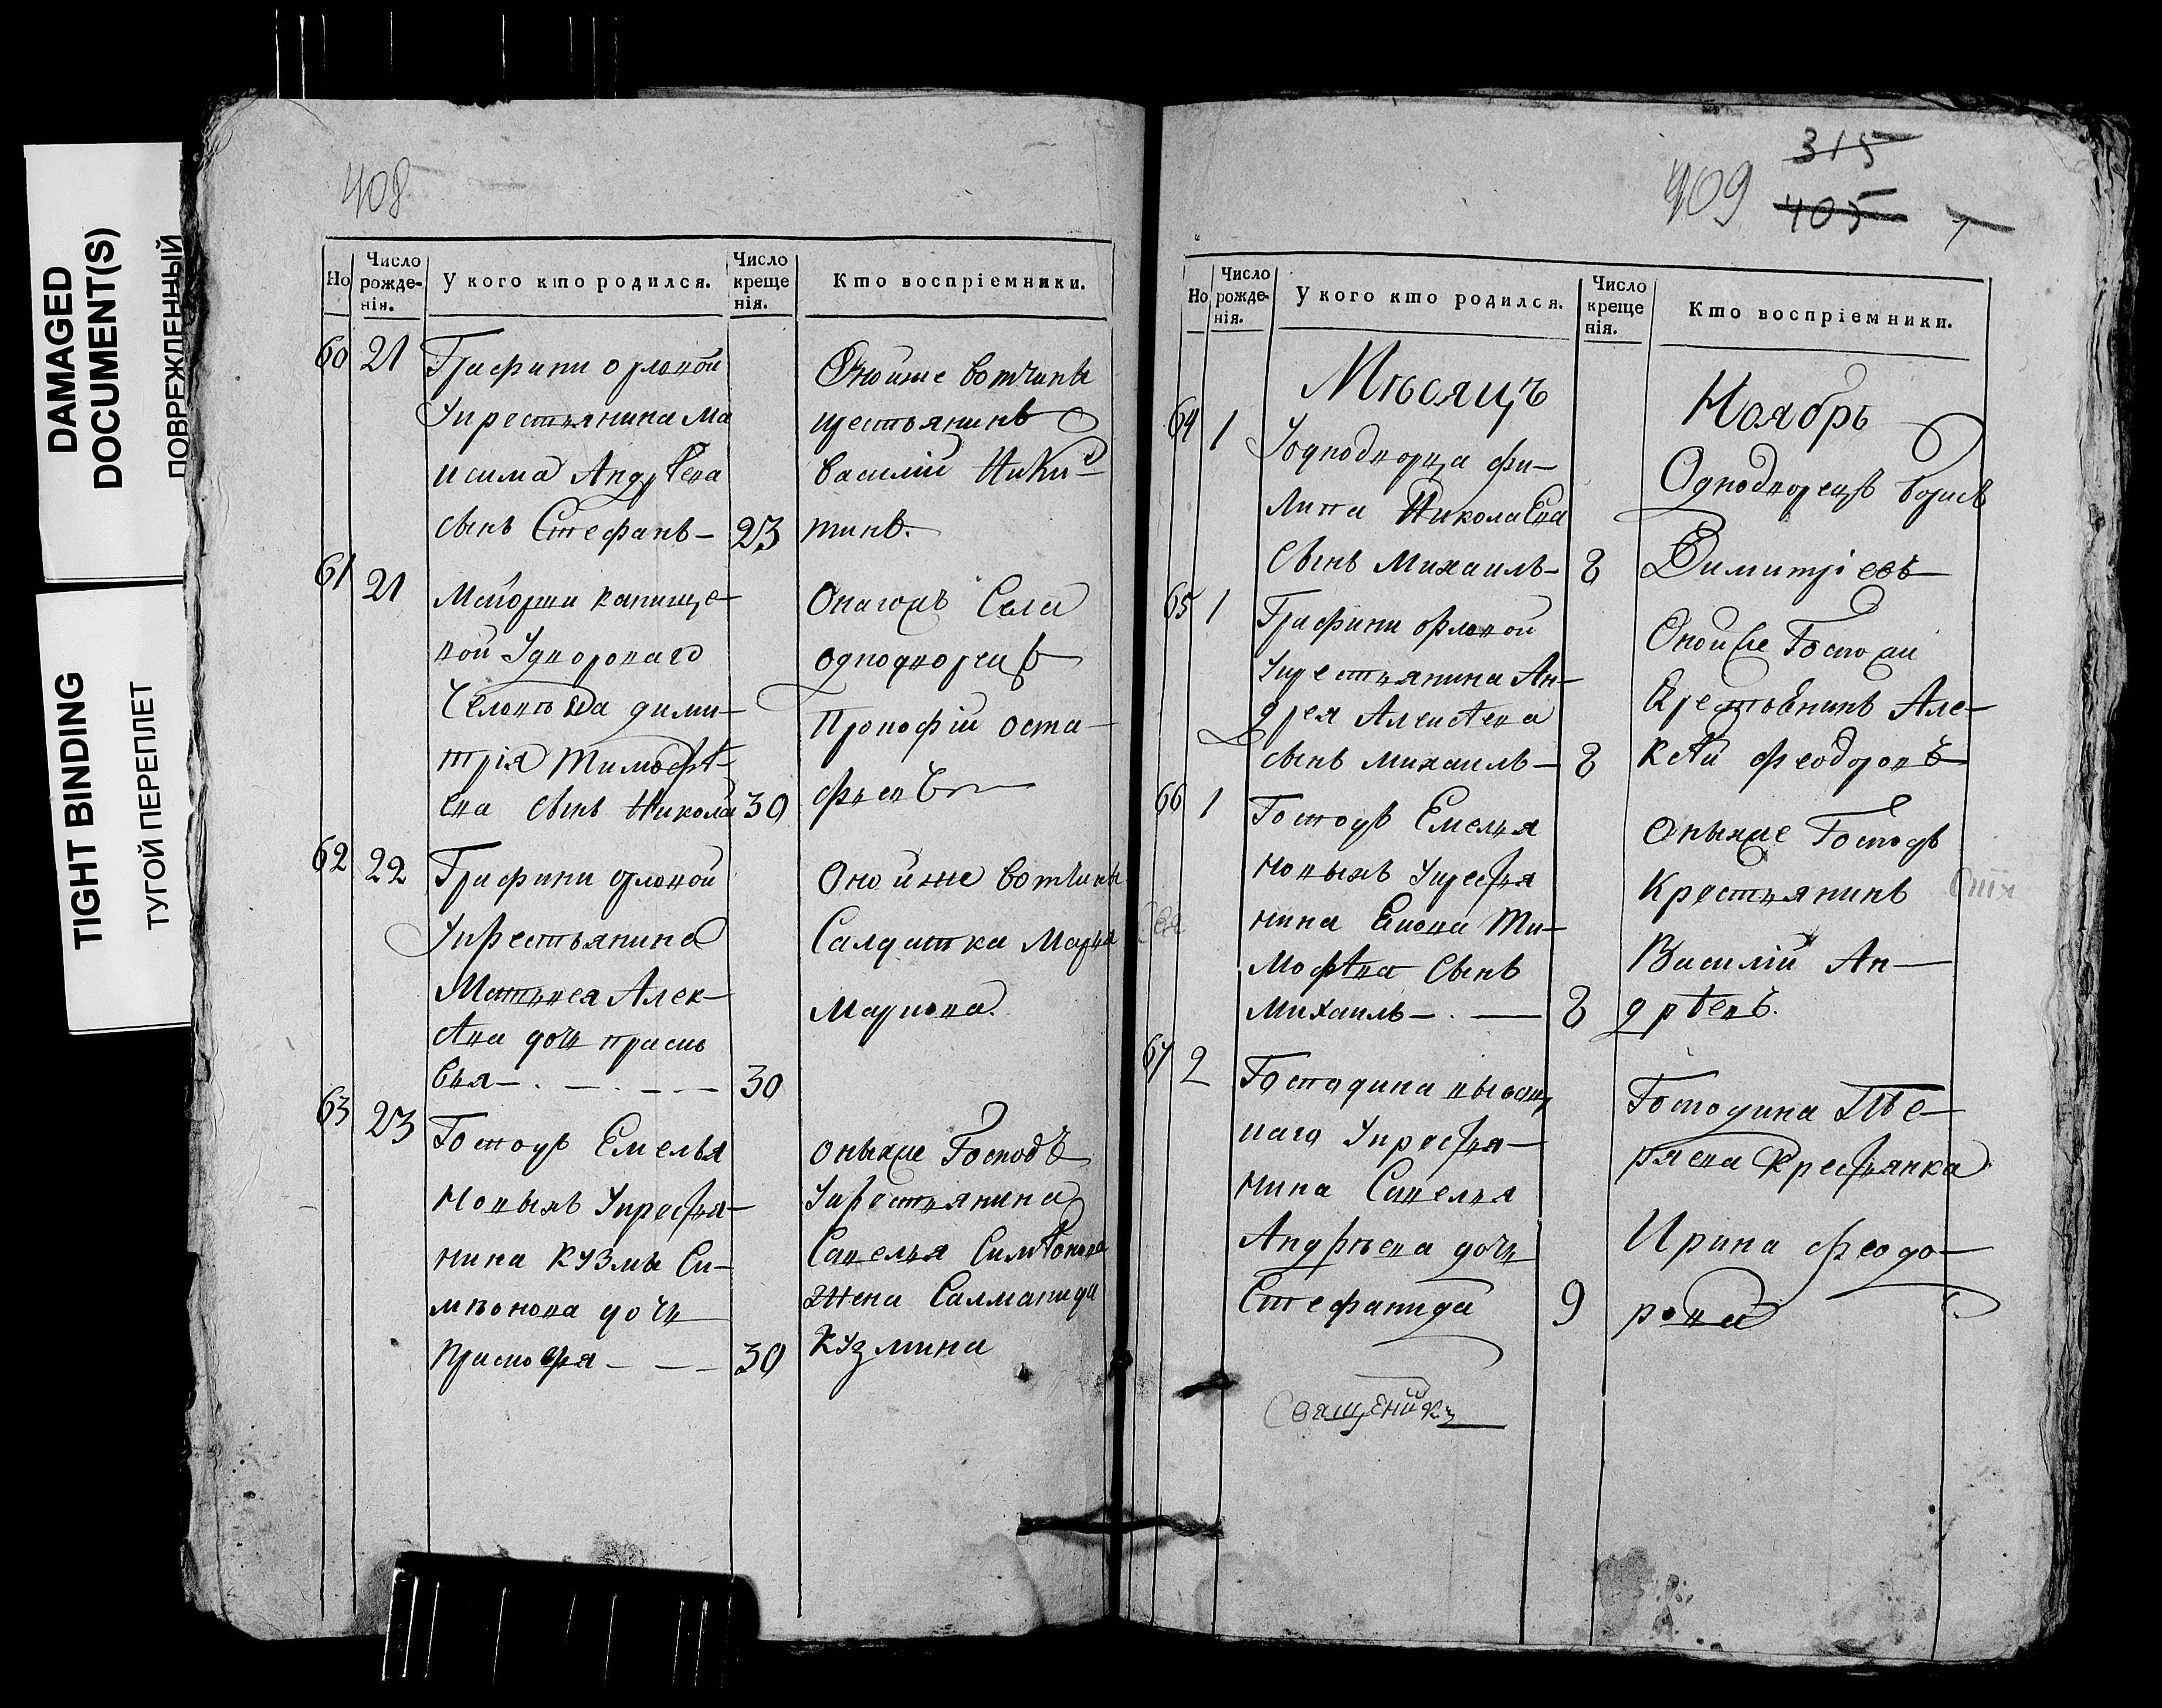 DAMAGED
DOCUMENT(S)
ПОВРЕЖДЕННЫЙ
TIGHT BINDING
ТУГОЙ ПЕРЕПЛЕТ
408
Но
Число рожденія.
У кого кто родился.
Число крещенія.
Кто воспріемники.
60 21 Графини орловой
Укрестьянина Ма
исима Андрѣева
сынъ Стефанъ 23
Онойже вотчины
крестьянинъ
василій Ники-
тинъ.
61 21 Маіорши
вой Удвороваго
Человѣка дими-
трія Тимофѣ-
ева сынъ Николай 30
Онагожъ Села
однодворецъ
Прокофій Оста-
фьевъ
62 22 Графини орловой
Укрестьянина
Матвѣя Алек-
ѣва дочь праско
вья 30
Онойже вотчины
Салдатка Марѳа
Маркова.
63 23 Господъ Емелья
новыхъ Укрестья-
нина Кузмы Си-
мѣонова дочь
Прасковья 30
оныхже Господъ
Укрестьянина
Савелья Симѣонова
Жена Саламанида
Кузмина
409
315
405
Но
Число рожденія.
У кого кто родился.
Число крещенія.
Кто воспріемники.
Мѣсяцъ Ноябрь
64 1 Уоднодворца фи-
липа Николаева
Сынъ Михаилъ 8
Однодворецъ борисъ
Димитріевъ
65 1 Графини орловой
Укрестьянина Ан-
дрея Алексѣева
сынъ михаилъ 8
Онойже Госпожи
Крестьянинъ Але-
ксѣй феодоровъ
66 1 Господъ Емелья
новыхъ Укрестья
нина Ти-
мофѣва Сынъ
Михаилъ 8
Оныхже Господъ
Крестьянинъ
Василій Ан-
дрѣевъ.
67 2 Господина
Укрестья-
нина Савелья
Андрѣева дочь
Стефанида 9
Господина
Крестьянка
Ирина феодо-
рова
Священникъ